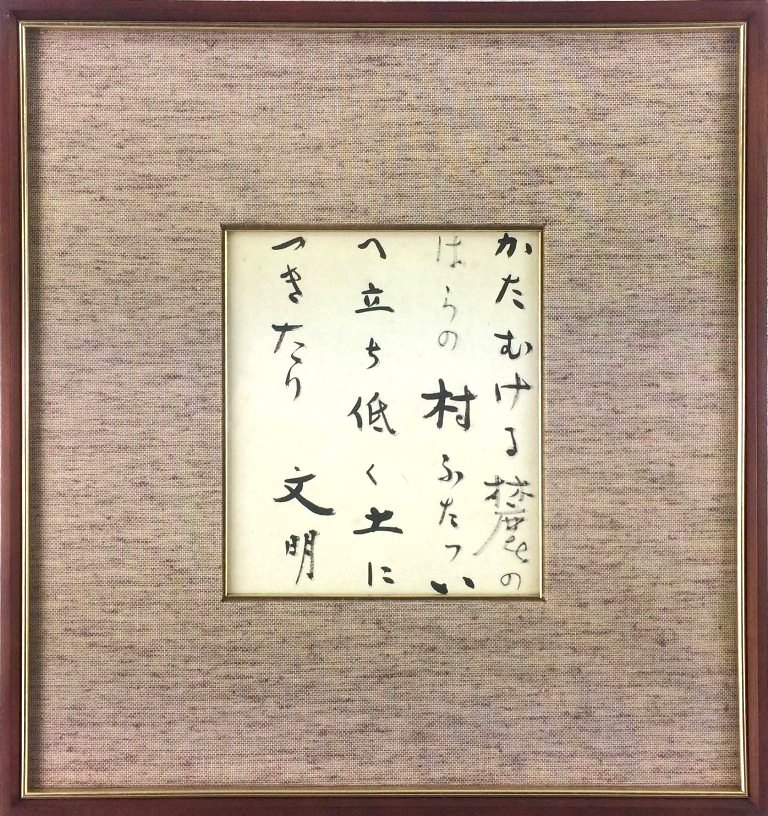 かたむける麓の
はらの村ふたつい
へ立ち低く土に
つきたり 文明